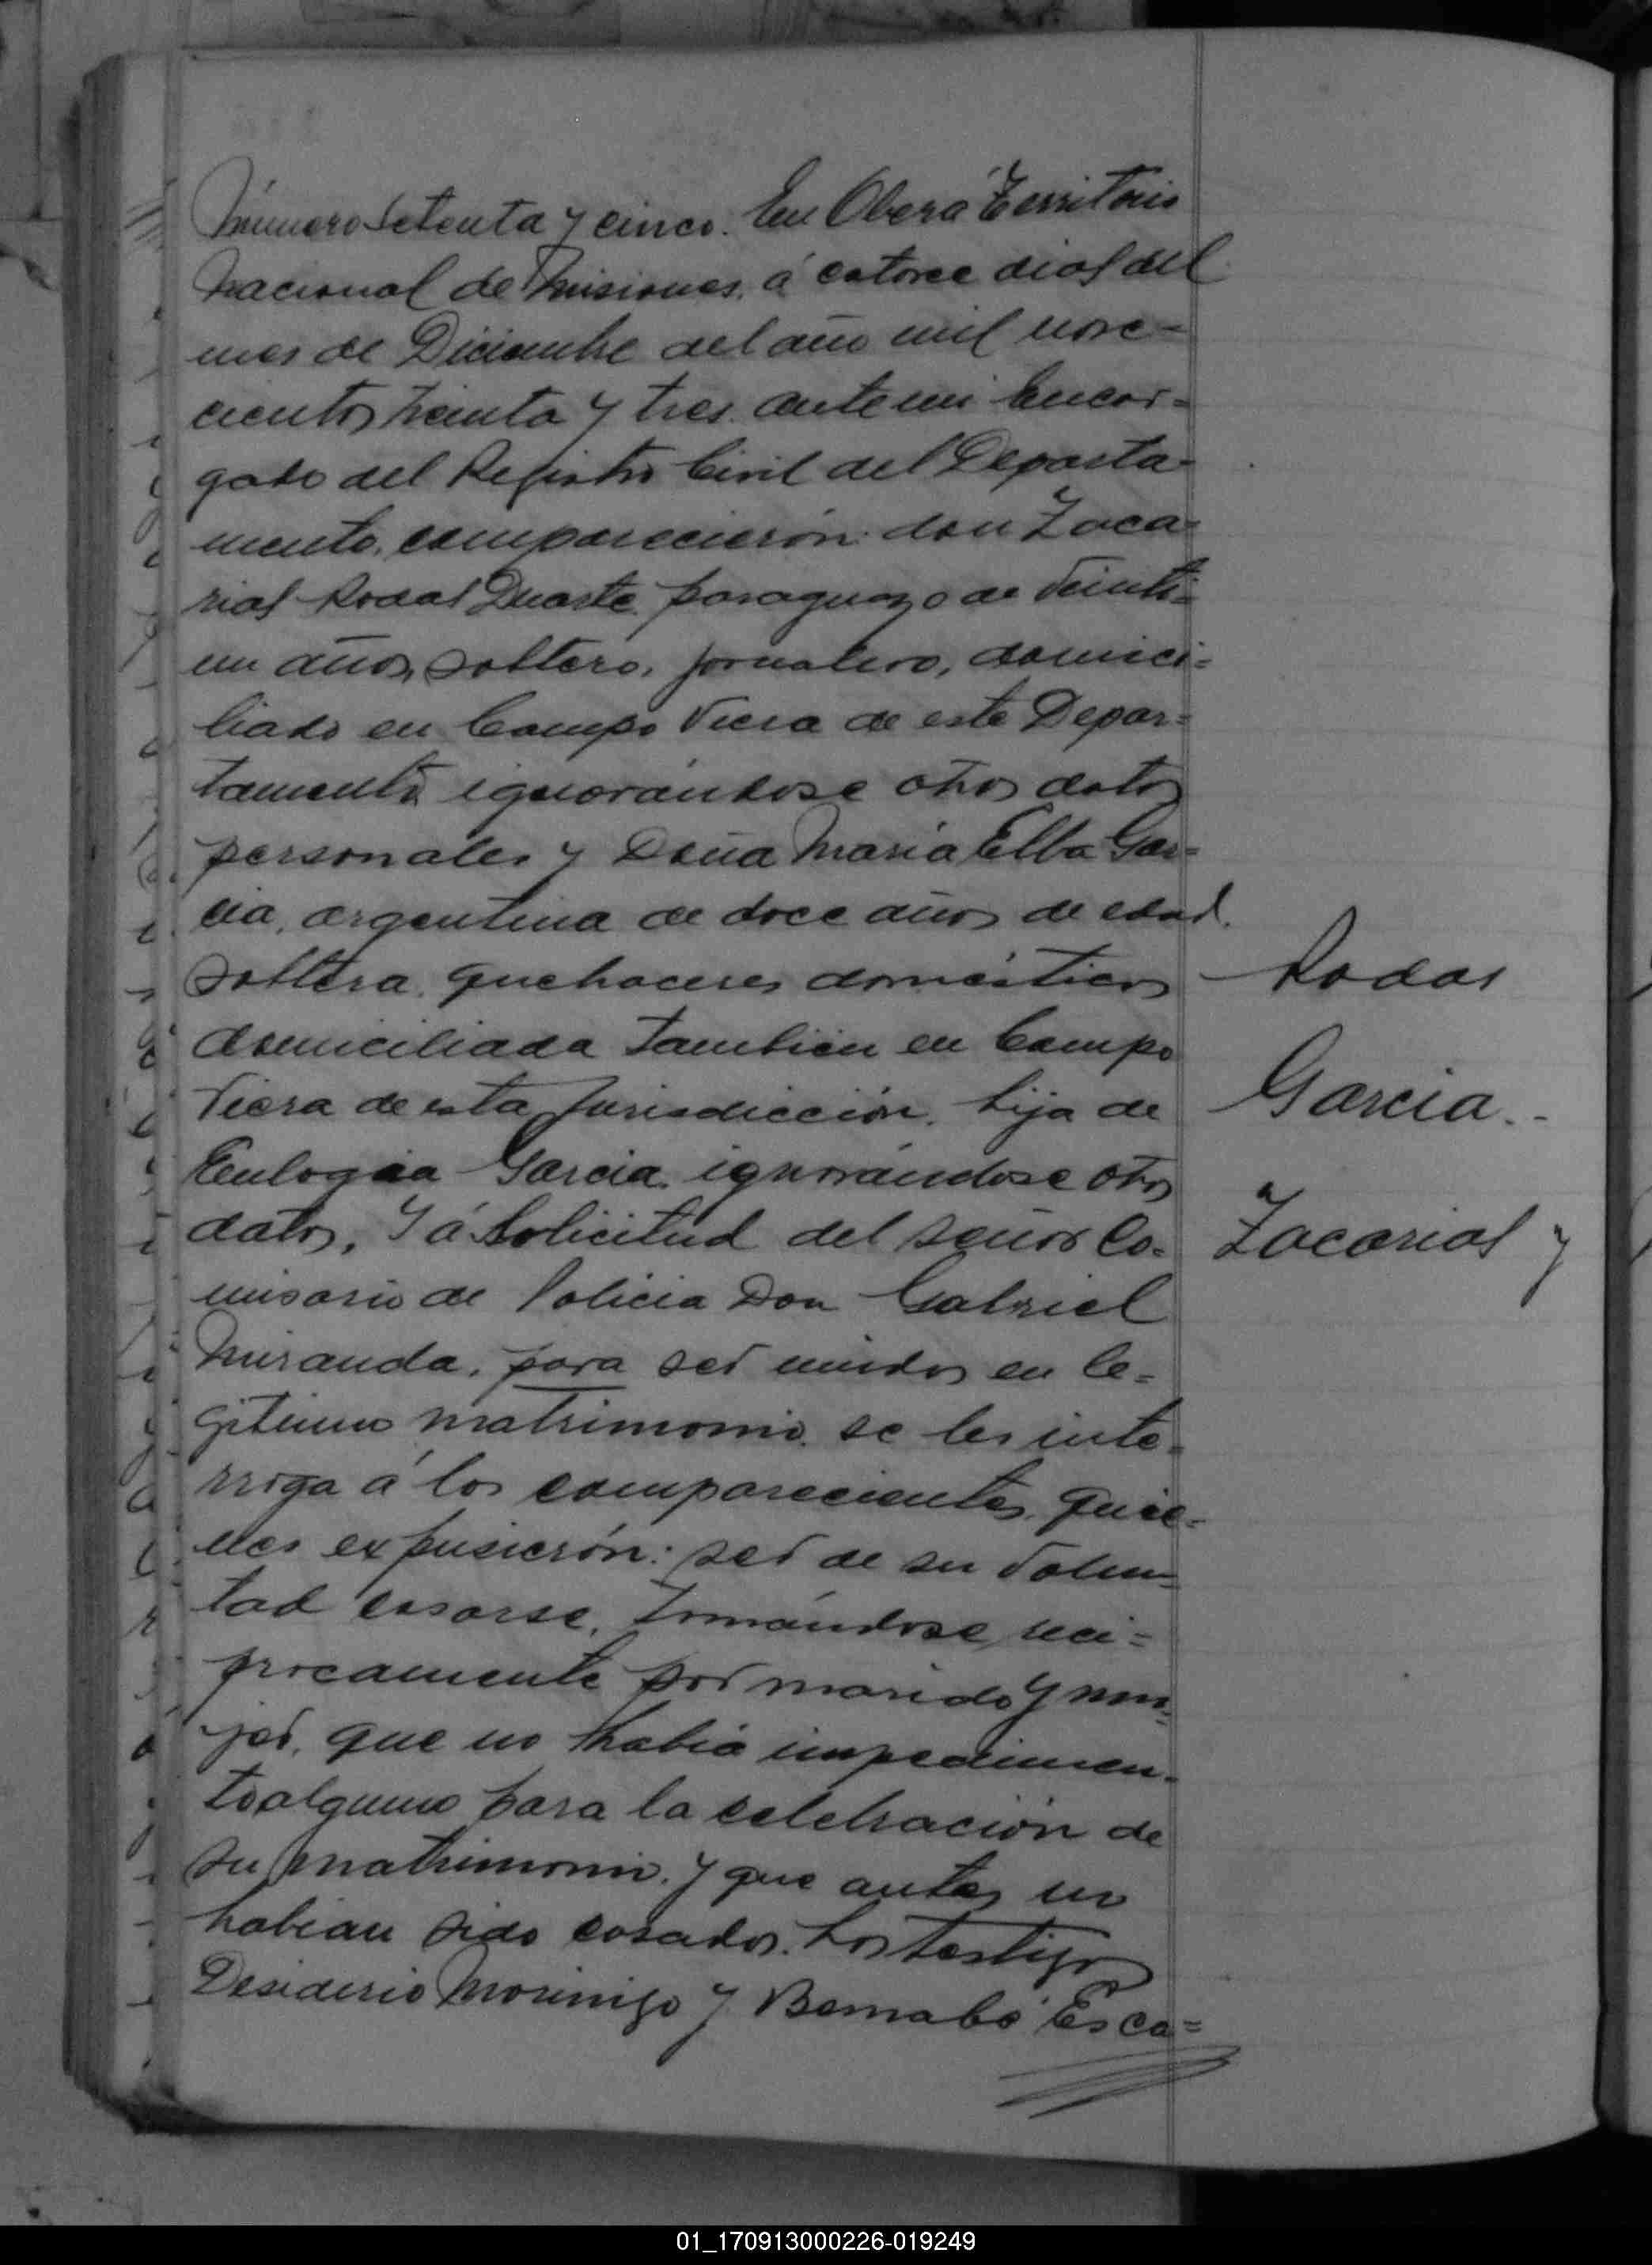 Número Setenta y cinco. En Oberá Territorio
Nacional de Misiones, á catorce dias del
mes de Diciembre del año mil nove=
cientos treinta y tres. ante mi Encar=
gado del Registro Civil del Departa=
mento, comparecierón: don Zaca=
rias Rodas Duarte, paraguayo de veinti=
un años, soltero, jornalero, domici=
liado en Campo Viera de este Depar=
tamento ignorándose otros datos
personales y Doña María Elba Gar=
cia, argentina de doce años de edad.
soltera, quehaceres domésticos
domiciliada tambien en Campo
Viera de esta Jurisdicción, hija de
Eulogia Garcia, ignorándose otros
datos, Y á solicitud del señor Co=
misario de Policia Don Gabriel
Miranda, para ser unidos en le=
gitimo matrimonio, se les inte=
rroga á los comparecientes, quie=
nes expusierón: ser de su volun=
tad casarse, tomándose reci=
procamente por marido y mu=
jer, que no había impedimen=
to alguno para la celebración de
su matrimonio, y que antes no
habian sido casados. Los testigos
Desiderio Morinigo y Bernabé Esca=
Rodas
Garcia..
Zacarias y
01_170913000226-019249